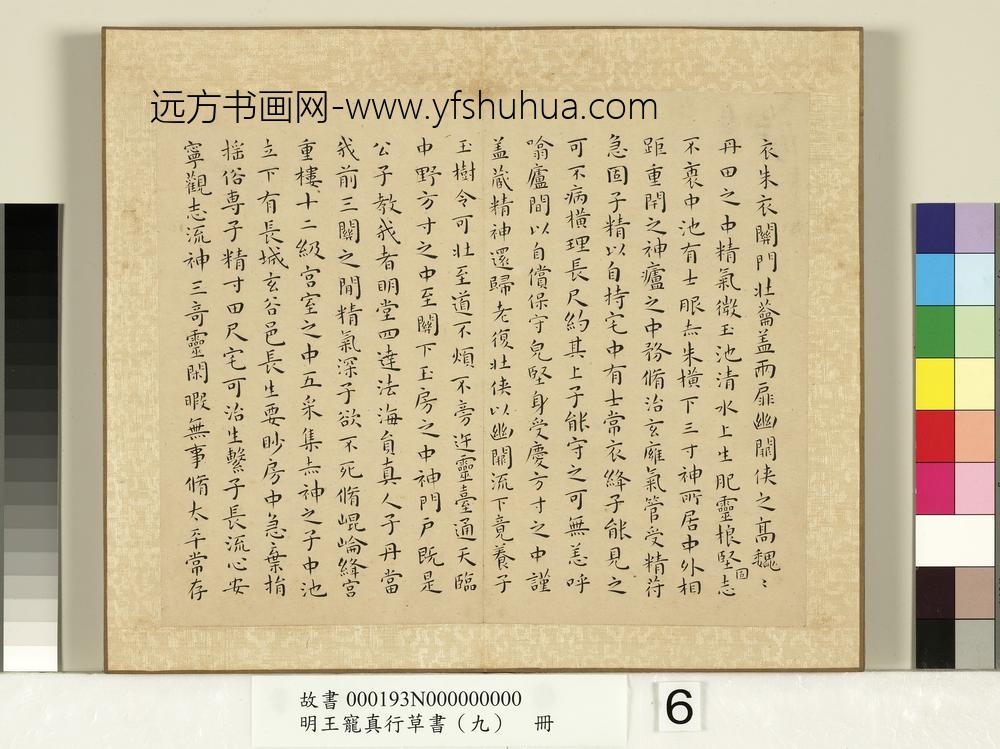 远方书画网-www.yfshuhua.com
衣朱衣關門壯蘥盖兩扉幽關俠之髙巍〻
丹田之中精氣微玉池清水上生肥靈根堅固志
不衰中池有士服赤朱橫下三寸神所居中外相
距重閇之神廬之中務脩治玄廱氣管受精符
急固子精以自持宅中有士常衣絳子能見之
可不病橫理長尺約其上子能守之可無恙呼
噏廬間以自償保守皃堅身受慶方寸之中謹
盖蔵精神還歸老復壯俠以幽關流下竟養子
玉樹令可壯至道不煩不旁迕靈臺通天臨
中野方寸之中至關下玉房之中神門戶既是
公子教我者明堂四達法海負真人子丹當
我前三關之間精氣深子欲不死脩崐崘絳宮
重樓十二級宮室之中五采集赤神之子中池
立下有長城玄谷邑長生要眇房中急棄捐
揺俗専子精寸田尺宅可治生繫子長流心安
寧觀志流神三竒靈閑暇無事脩太平常存
故書 000193N000000000
明王寵真行草書（九） 冊
6